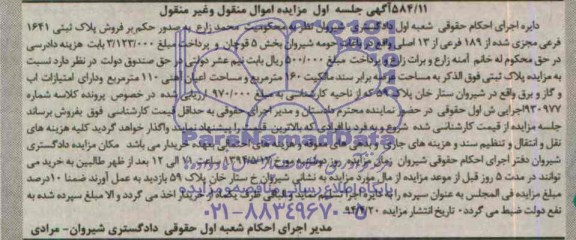 ۵۸۴/۱۱آگهی جلسه اول مزایده اموال منقول وغیر منقول
دایره اجرای احکام حقوقی شعبه اول دادگستری شیروان نظر به محکومیت محمد زارع به صدور حکم بر فروش پلاک ثبتی ۱۶۴۱
فرعی مجزی شده از ۱۸۹ فرعی از ۱۳ اصلی واقع در حومه شیروان بخش ۵ قوچان و پرداخت مبلغ ۳/۱۲۳/۰۰۰ بابت هزینه دادرسی
در حق محکوم له خانم آمنه زارع و برات زارع و پرداخت مبلغ ۵۰۰/۰۰۰ ریال بابت نیم عشر دولتی در حق صندوق دولت در نظر دارد نسبت
به مزایده پلاک ثبتی فوق الذکر به مساحت عرصه برابر سند مالکیت ۱۶۰ مترمربع و مساحت اعیان ۱۱۰ مترمربع ودارای امتیازات اب
و گاز و برق واقع در شیروان ستار خان پلاک ۵۹ که از ناحیه کارشناسی به مبلغ ۹۷۰/۰۰۰/ ارزیابی شده در خصوص پرونده کلاسه شماره
۹۳۰۹۷۷اجرایی ش اول حقوقی در حضور نماینده محترم دادستان و مدیر اجرای حقوقی به حداقل قیمت کارشناسی فوق بفروش برساند
جلسه مزایده از قیمت کارشناسی شده شروع و به فرد یا افرادی که بالاترین قیمت را پیشنهاد نمایند واگذار خواهد گردید کلیه هزینه های
نقل و انتقال و تنظیم سند و هزینه های جاری و هزینه های خریدار می باشد مکان مزایده دادگستری
شیروان دفتر اجرای احکام حقوقی شیروان زمان مزایده روز دوشنبه مورخ ساعت ۱۱ الی ۱۲ بعد از ظهر طالبین به خرید می
توانند در مدت ۵ روز قبل از موعد مزایده از مال مورد مزایده به نشانی شیروان خ ستار خان پلاک ۵۹ بازدید به عمل آورند ضمنا ۱۰درصد
مبلغ مزایده فی المجلس به عنوان سپرده از خریدار اخذ می گردد و الا مبلغ سپرده شده به
نفع دولت ضبط می گردد۰ تاریخ انتشار مزایده ۹۴/۷/۲۰
مدیر اجرای احکام شعبه اول حقوقی دادگستری شیروان- مرادی
ParsNamadData
پایگاه اطلاع رسانی مناقصه و مزایده
۰۲۱-۸۸۳۴۹۶۷۰-۵